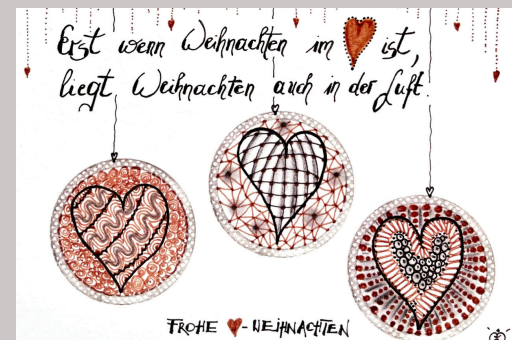 Erst wenn Weihnachten im ♥ ist,
liegt Weihnachten auch in der Luft.
FROHE ♥-WEIHNACHTEN